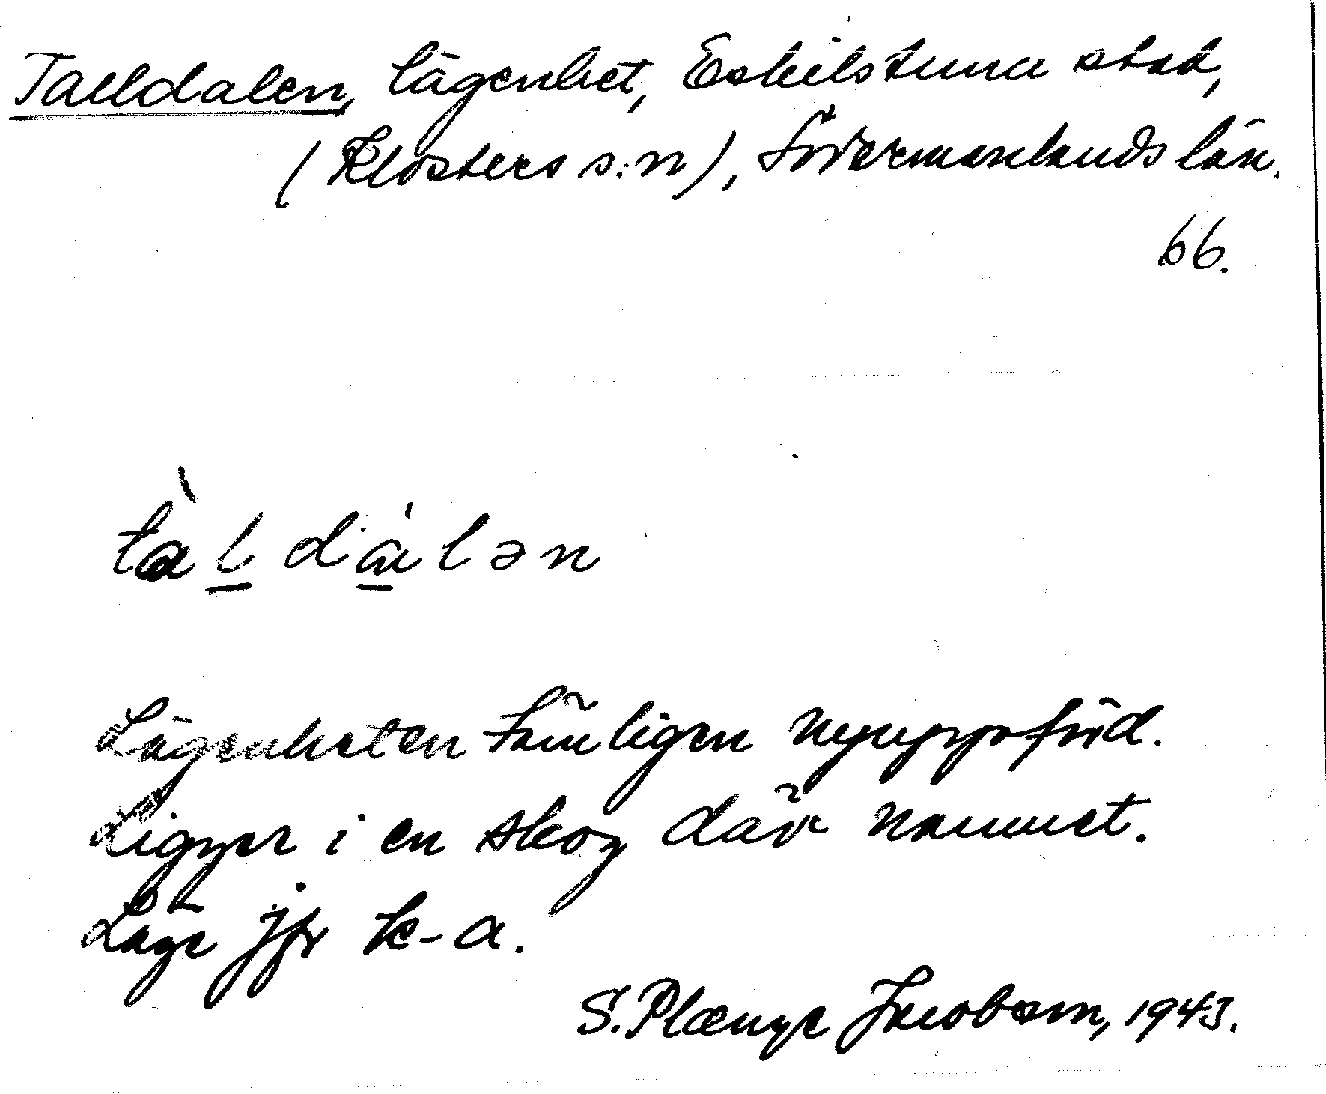 Talldalen, lägenhet, Eskilstuna stad,
(Klosters s:n), Södermanlands län.
66.
tàl dálən
Lägenheten tämligen nyuppförd.
Ligger i en skog därav namnet.
Läge jfr k-a.
S. Plænge Jacobson, 1943.